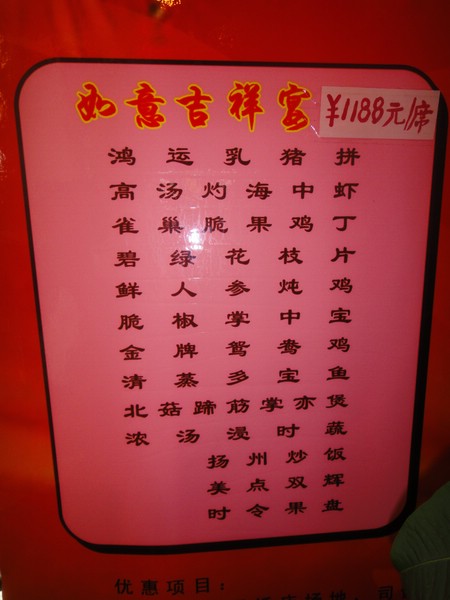 如意吉祥宴
¥1188元/席
鸿运乳猪拼
高汤灼海中虾
雀巢脆果鸡丁
碧绿花枝片
鲜人参炖鸡
脆椒掌中宝
金牌鸳鸯鸡
清蒸多宝鱼
北菇蹄筋掌亦煲
浓汤浸时蔬
扬州炒饭
美点双辉
时令果盘
优惠项目：